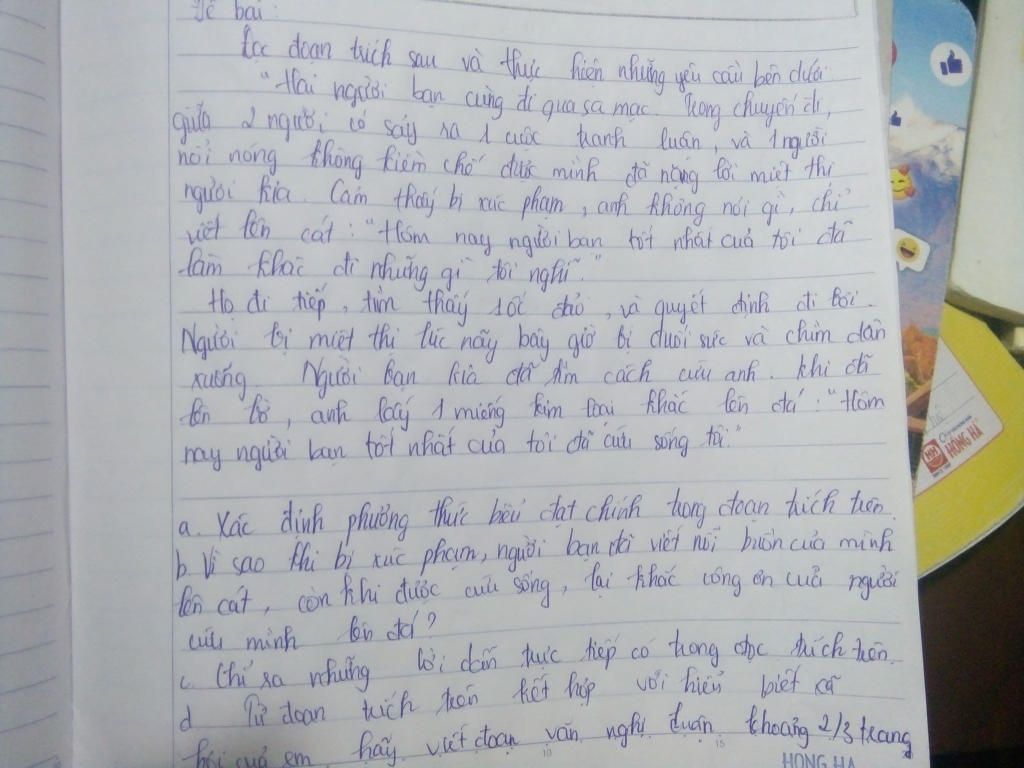 Đề bài:
Đọc đoạn trích sau và thực hiện những yêu cầu bên dưới
"Hai người bạn cùng đi qua sa mạc. Trong chuyến đi,
giữa 2 người có sảy ra 1 cuộc tranh luận, và 1 người
nổi nóng không kiềm chế được mình đã nặng lời miệt thị
người kia. Cảm thấy bị xúc phạm, anh không nói gì, chỉ
viết lên cát: "Hôm nay người bạn tốt nhất của tôi đã
làm khác đi những gì tôi nghĩ."
Họ đi tiếp, tìm thấy 1 ốc đảo, và quyết định đi bơi.
Người bị miệt thị lúc nãy bây giờ bị đuối sức và chìm dần
xuống. Người bạn kia đã tìm cách cứu anh. Khi đã
lên bờ, anh lấy 1 miếng kim loại khắc lên đá: "Hôm
nay người bạn tốt nhất của tôi đã cứu sống tôi."
a. Xác định phương thức biểu đạt chính trong đoạn trích trên.
b. Vì sao khi bị xúc phạm, người bạn đã viết nỗi buồn của mình
lên cát, còn khi được cứu sống, lại khắc công ơn của người
cứu mình lên đá?
c. Chỉ sa những lời dẫn trực tiếp có trong đọc trích trên.
d Từ đoạn trích trên kết hợp với hiểu biết xã
hội của em hãy viết đoạn văn nghị luận khoảng 2/3 trang
10 15
HONG HA
HỒNG HÀ